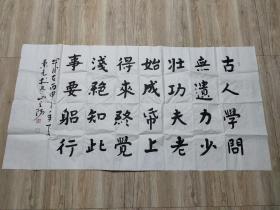 古人學問
無遺力少
壯功夫老
始成帋上
得來終覺
淺絕知此
事要躳行